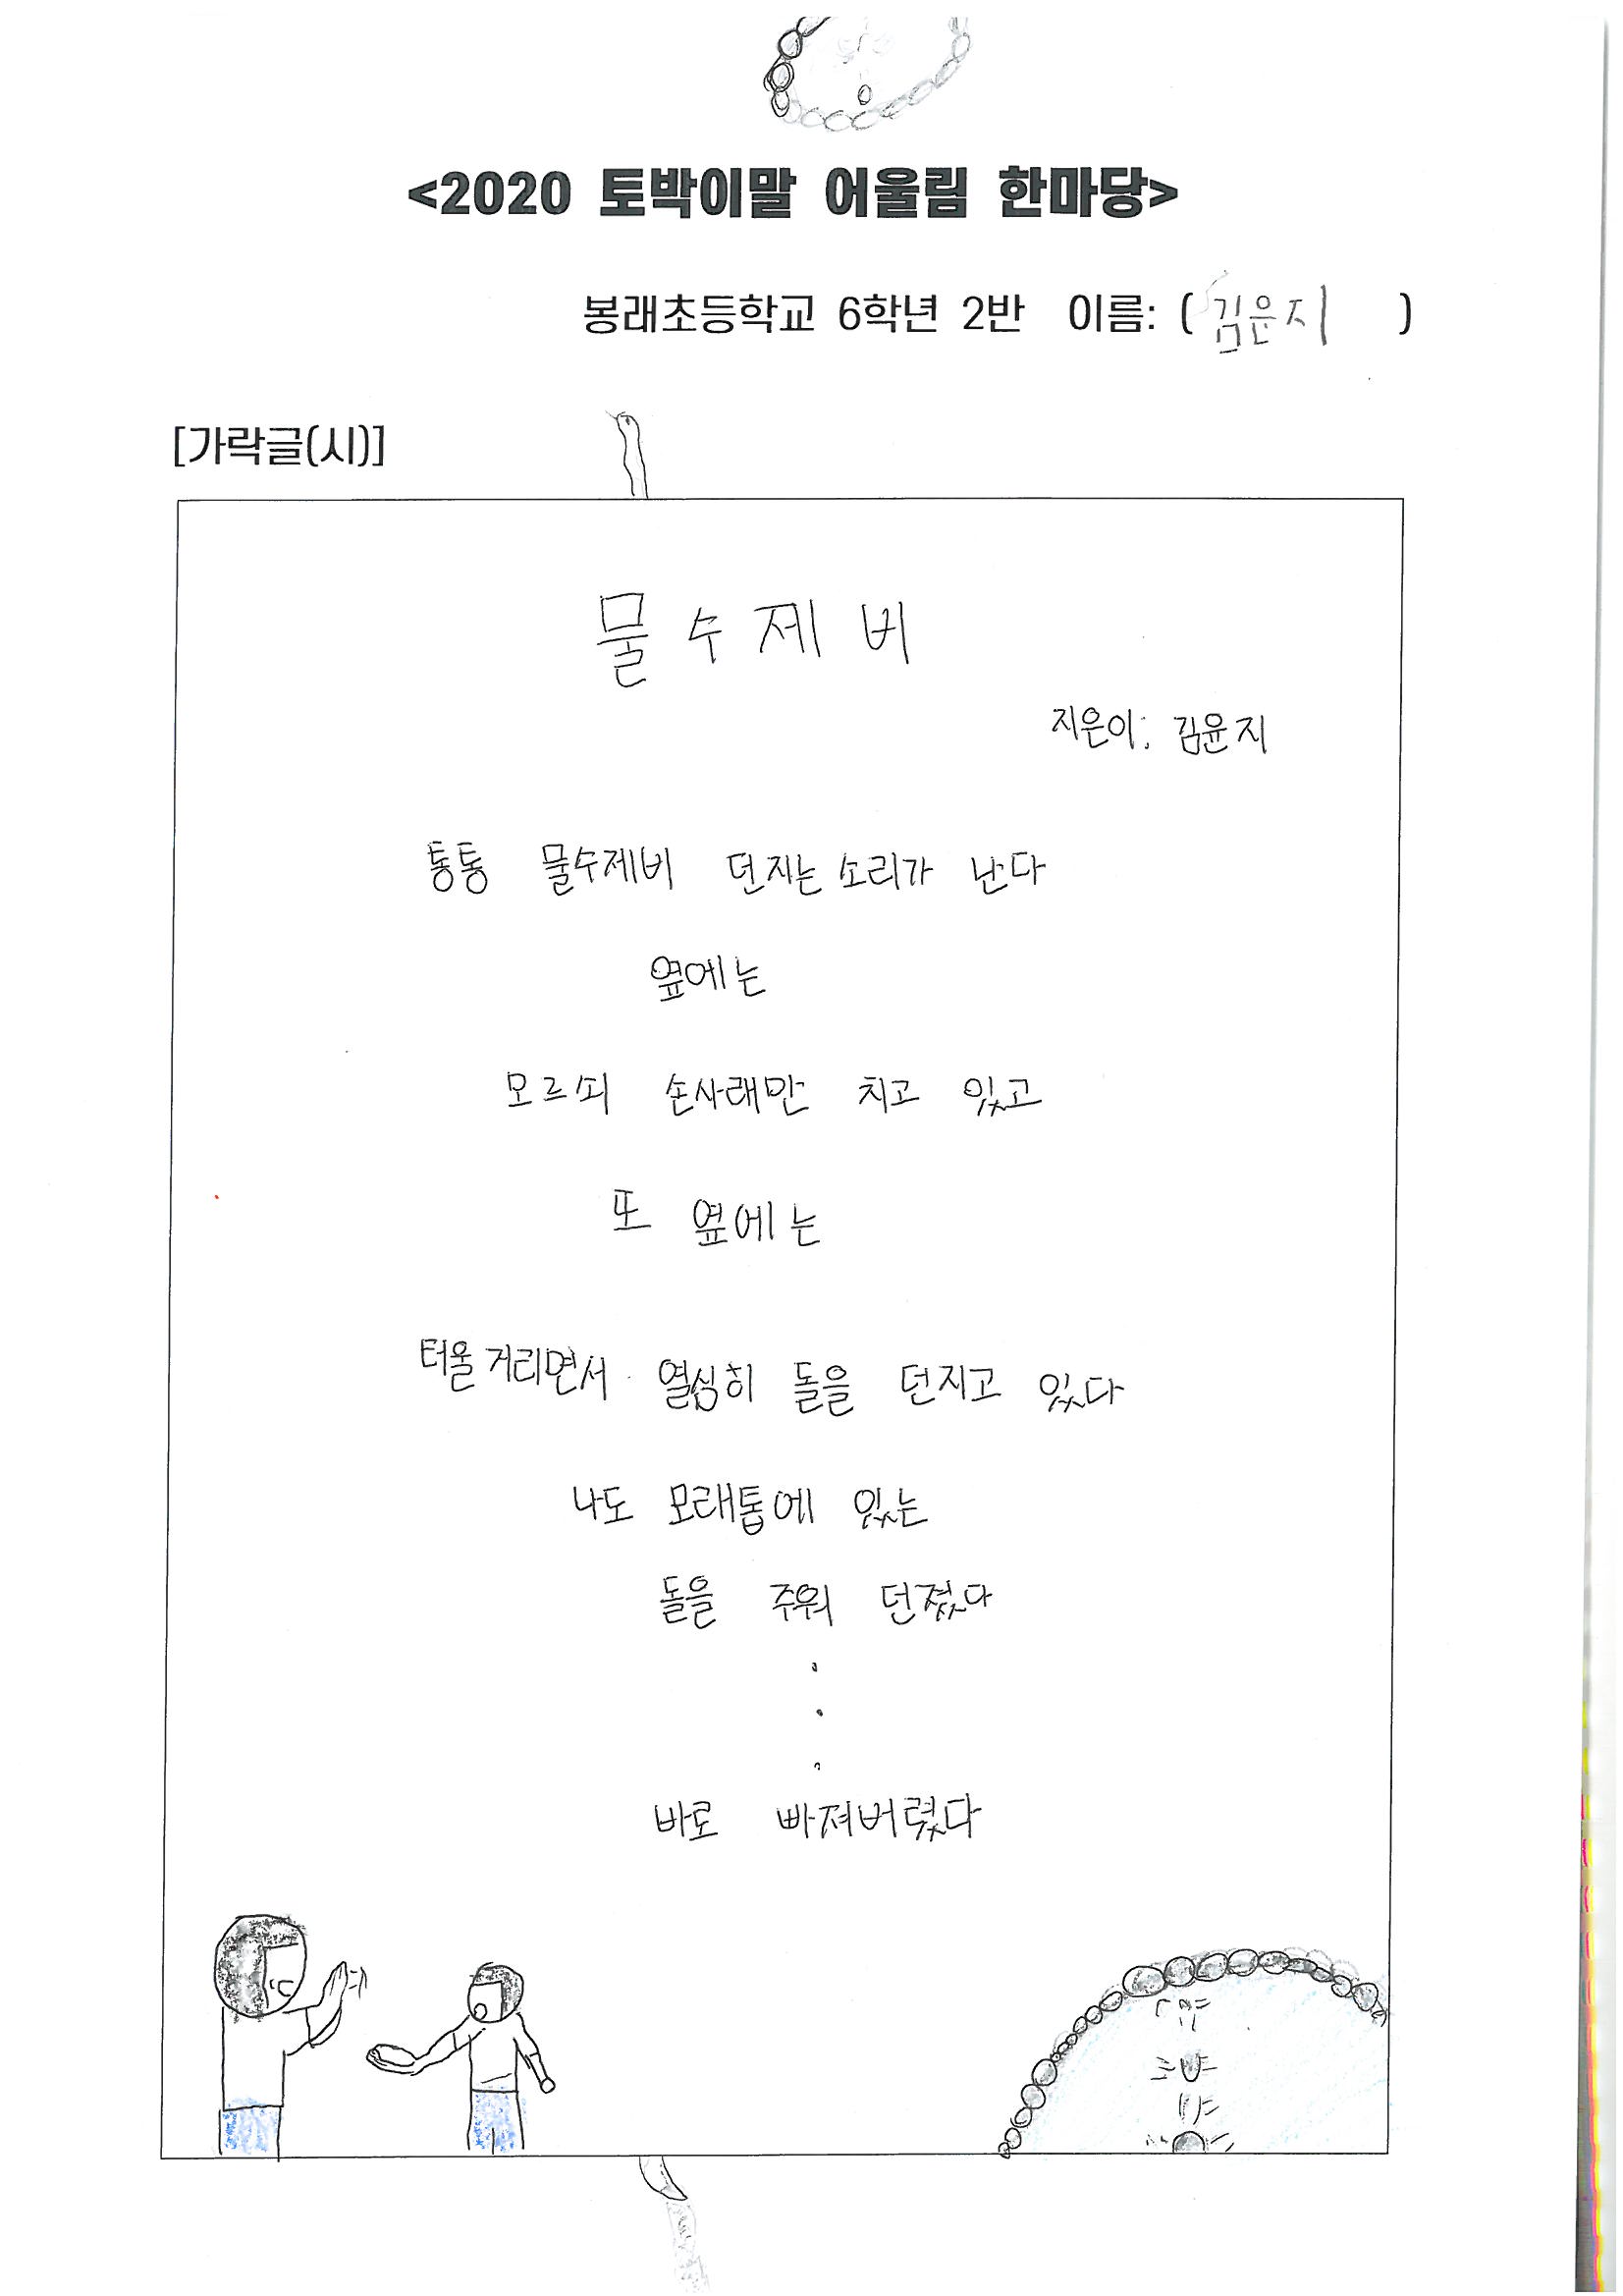 <2020 토박이말 어울림 한마당>
봉래초등학교 6학년 2반 이름: (김윤지)
[가락글(시)]
물수제비
지은이: 김윤지
통통 물수제비 던지는 소리가 난다
옆에는
모르쇠 손사래만 치고 있고
또 옆에는
터울거리면서 열심히 돌을 던지고 있다
나도 모래톱에 있는
돌을 주워 던졌다
.
.
.
바로 빠져버렸다